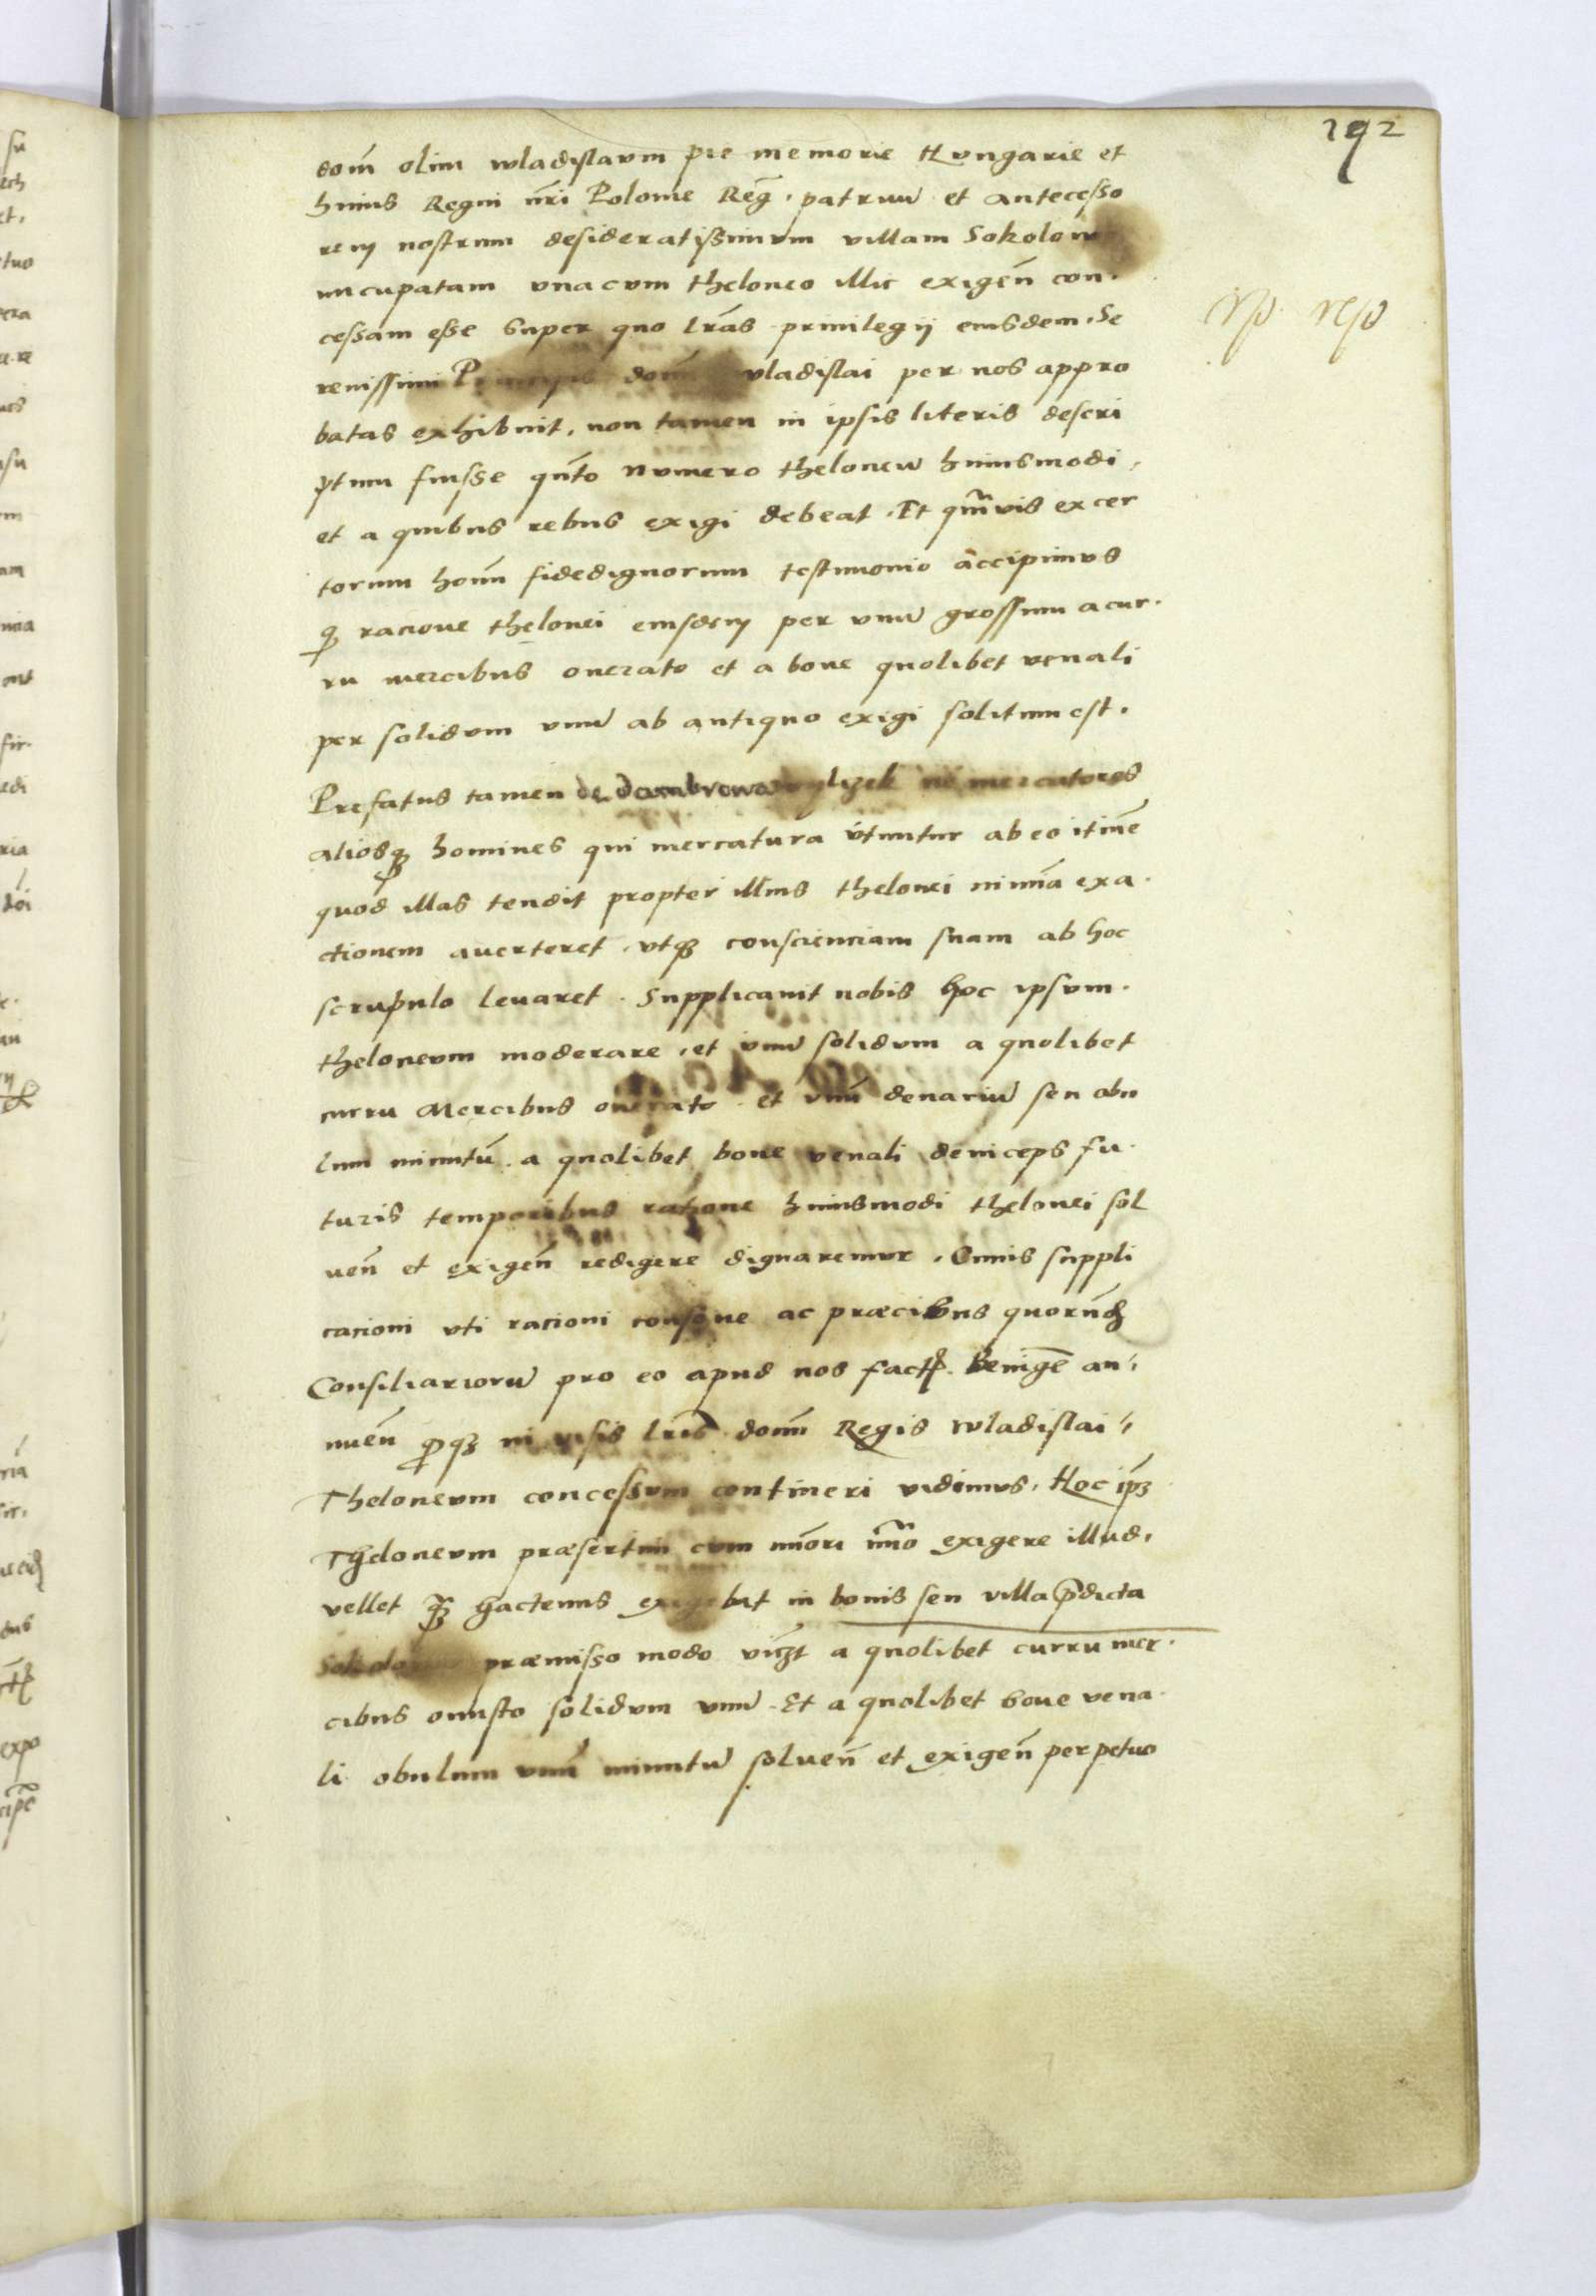 192
dom̄ olim wladislaum pie memorie Hungarie et
huius Regni nr̄i Polonie Reg̃. patruu̅ et antecesso
rem nostrum desideratissimum villam Sokolow
nuncupatam vnacum theloneo illic exigen̄ con.
cessam esse super quo lr̄as priuilegij eiusdem. Se
renissimi Principis dom̄ vladislai per nos appro
batas exhibuit, non tamen in ipsis literis descri
ptum fuisse qn̄to numero theloneu̅ huiusmodi,
et a quibus rebus exigi debeat. Et qm̄vis ex cer
torum hoīm fidedignorum testimonio accipimus
q̈ racione thelonei eiusdem per vnu̅ grossum a cur.
ru mercibus onerato et a boue quolibet venali
per solidum vnu̅ ab antiquo exigi solitum est.
Prefatus tamen de dambrowa ne mercatores
aliosq₃ homines qui mercatura vtuntur ab eo itin̄e
quod illas tendit propter illius thelonei nimīa exa.
ctionem auerteret, vtq₃ conscienciam suam ab hoc
scrupulo leuaret. Supplicauit nobis hoc ipsum.
theloneum moderare, et vnu̅ solidum a quolibet
curru Mercibus onerato. et vnū denariu̅ seu obu
lum minutū. a quolibet boue venali deinceps fu.
turis temporibus ratione huiusmodi thelonei sol
uen̄ et exigen̄ redigere dignaremur. Cuius suppli
cacioni vti racioni consone ac præcibus quorūd₃
Consiliarioru̅ pro eo apud nos fact̄. Benign̄e an.
nuen̄ ꝓq₃ in visis lris dom̄ Regis wladislai.
Theloneum concessum contineri vidimus. Hoc ip̄₃
Theloneum præsertim cum mīori nūo exigere illud.
vellet q̄₃ hactenus exigebat in bonis seu villa p̄dicta
Sokolow præmisso modo vicȝt a quolibet curru mer.
cibus onusto solidum vnu̅. Et a quolibet boue vena.
li obulum vnū minutu̅ soluen̄ et exigen̄ perpetuo